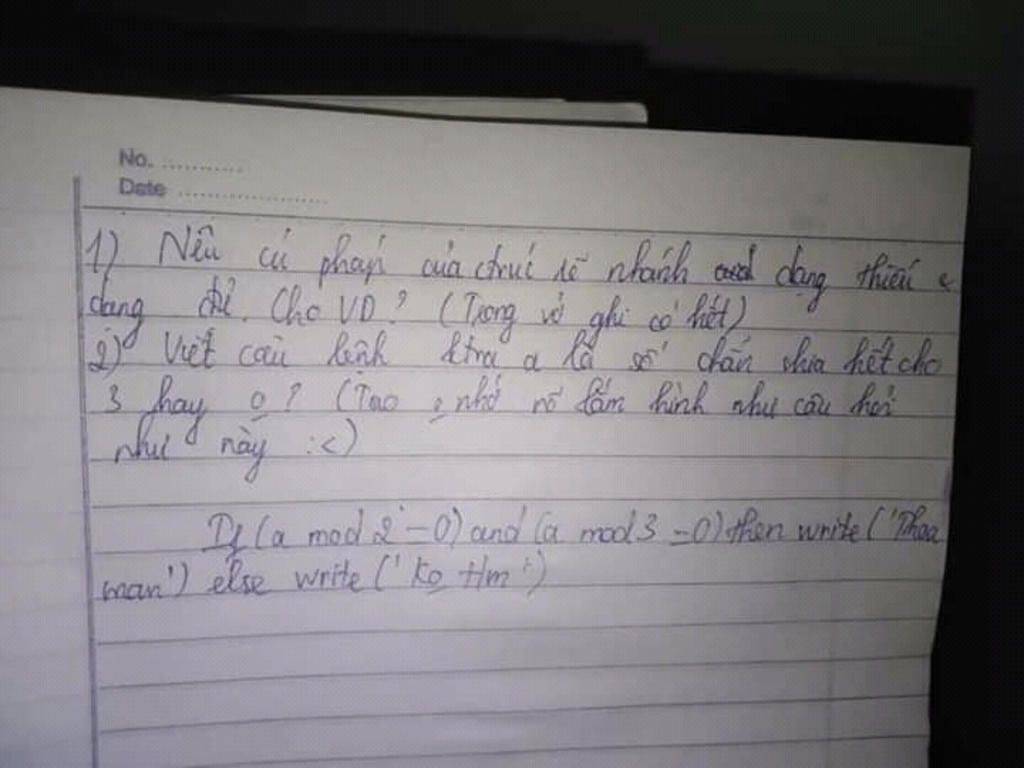 No. ...........
Date ....................
1) Nêu cú pháp của ctrúc rẽ nhánh dạng thiếu &
dạng đủ. Cho VD? (Trong vở ghi có hết)
2) Viết câu lệnh ktra a là số chẵn chia hết cho
3 hay o? (Tao o nhớ rõ lắm hình như câu hỏi
như này :<)
If (a mod 2 =0) and (a mod 3 =0) then write ('Thoa
man') else write ('Ko t/m')